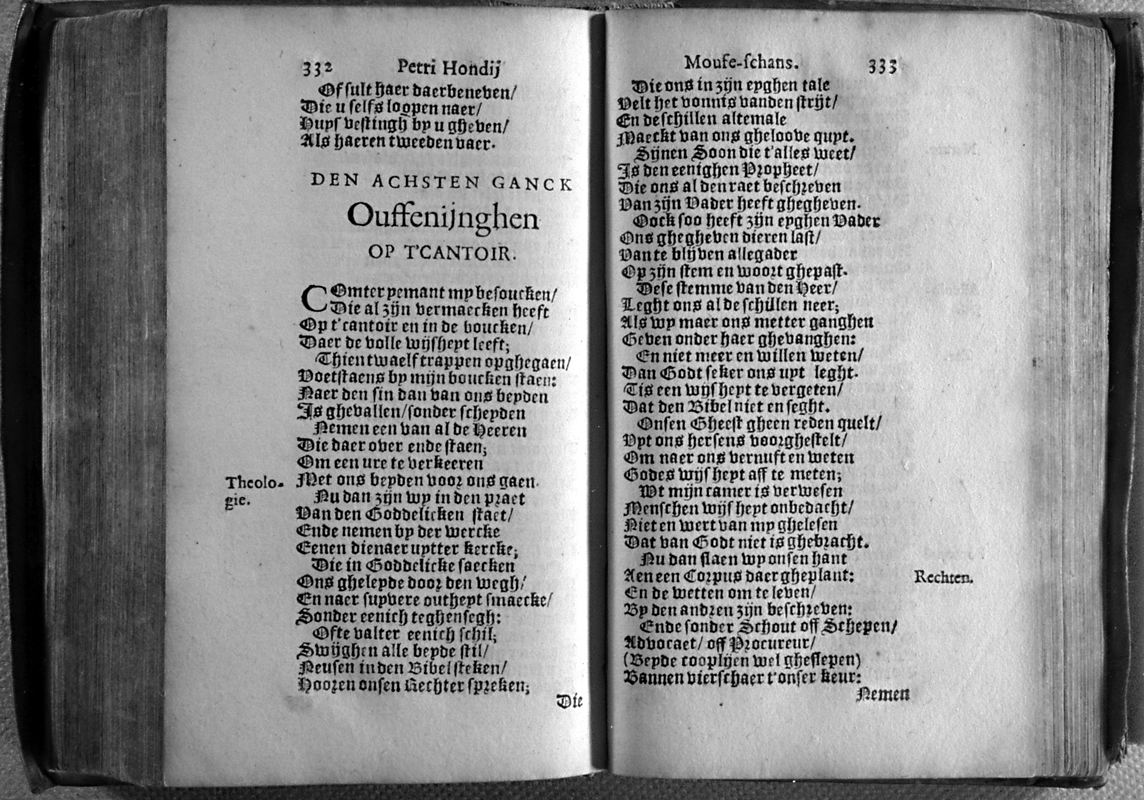 332 Petri Hondij
Of sult haer daerbeneven/
Die u selfs loopen naer/
Huys vestingh by u gheven/
Als haeren tweeden vaer.
DEN ACHSTEN GANCK
Ouffenijnghen
OP T'CANTOIR.
COmter yemant my besoucken/
Die al zijn vermaecken heeft
Op t'cantoir en in de boucken/
Daer de volle wijsheyt leeft;
Thien twaelf trappen opghegaen/
Voetstaens by mijn boucken staen:
Naer den sin dan van ons beyden
Is ghevallen/sonder scheyden
Nemen een van al de Heeren
Die daer over ende staen;
Om een ure te verkeeren
Met ons beyden voor ons gaen.
Theolo-
gie.
Nu dan zijn wy in den praet
Van den Goddelicken staet/
Ende nemen by der wercke
Eenen dienaer uytter kercke;
Die in Goddelicke saecken
Ons gheleyde door den wegh/
En naer suyvere outheyt smaecke/
Sonder eenich teghensegh:
Ofte valter eenich schil;
Swijghen alle beyde stil/
Neusen in den Bibel steken/
Hooren onsen Rechter spreken;
Die
Mouse-schans. 333
Die ons in zijn eyghen tale
Velt het vonnis vanden strijt/
En de schillen altemale
Maeckt van ons gheloove quyt.
Sijnen Soon die t'alles weet/
Is den eenighen Propheet/
Die ons al den raet beschreven
Van zijn Vader heeft ghegheven.
Oock soo heeft zijn eyghen Vader
Ons ghegheven dieren last/
Van te blijven allegader
Op zijn stem en woort ghepast.
Dese stemme van den Heer/
Leght ons al de schillen neer;
Als wy maer ons metter ganghen
Geven onder haer ghevanghen:
En niet meer en willen weten/
Dan Godt seker ons uyt leght.
Tis een wijsheyt te vergeten/
Dat den Bibel niet en seght.
Onsen Gheest gheen reden quelt/
Uyt ons hersens voorghestelt/
Om naer ons vernuft en weten
Godes wijsheyt aff te meten;
Wt mijn camer is verwesen
Menschen wijsheyt onbedacht/
Niet en wert van my ghelesen
Dat van Godt niet is ghebracht.
Nu dan slaen wy onsen hant
Aen een Corpus daer gheplant:
Rechten.
En de wetten om te leven/
By den andren zijn beschreven:
Ende sonder Schout off Schepen/
Advocaet/ off Procureur/
(Beyde tooplijen wel gheslepen)
Bannen vierschaer t'onser keur:
Nemen